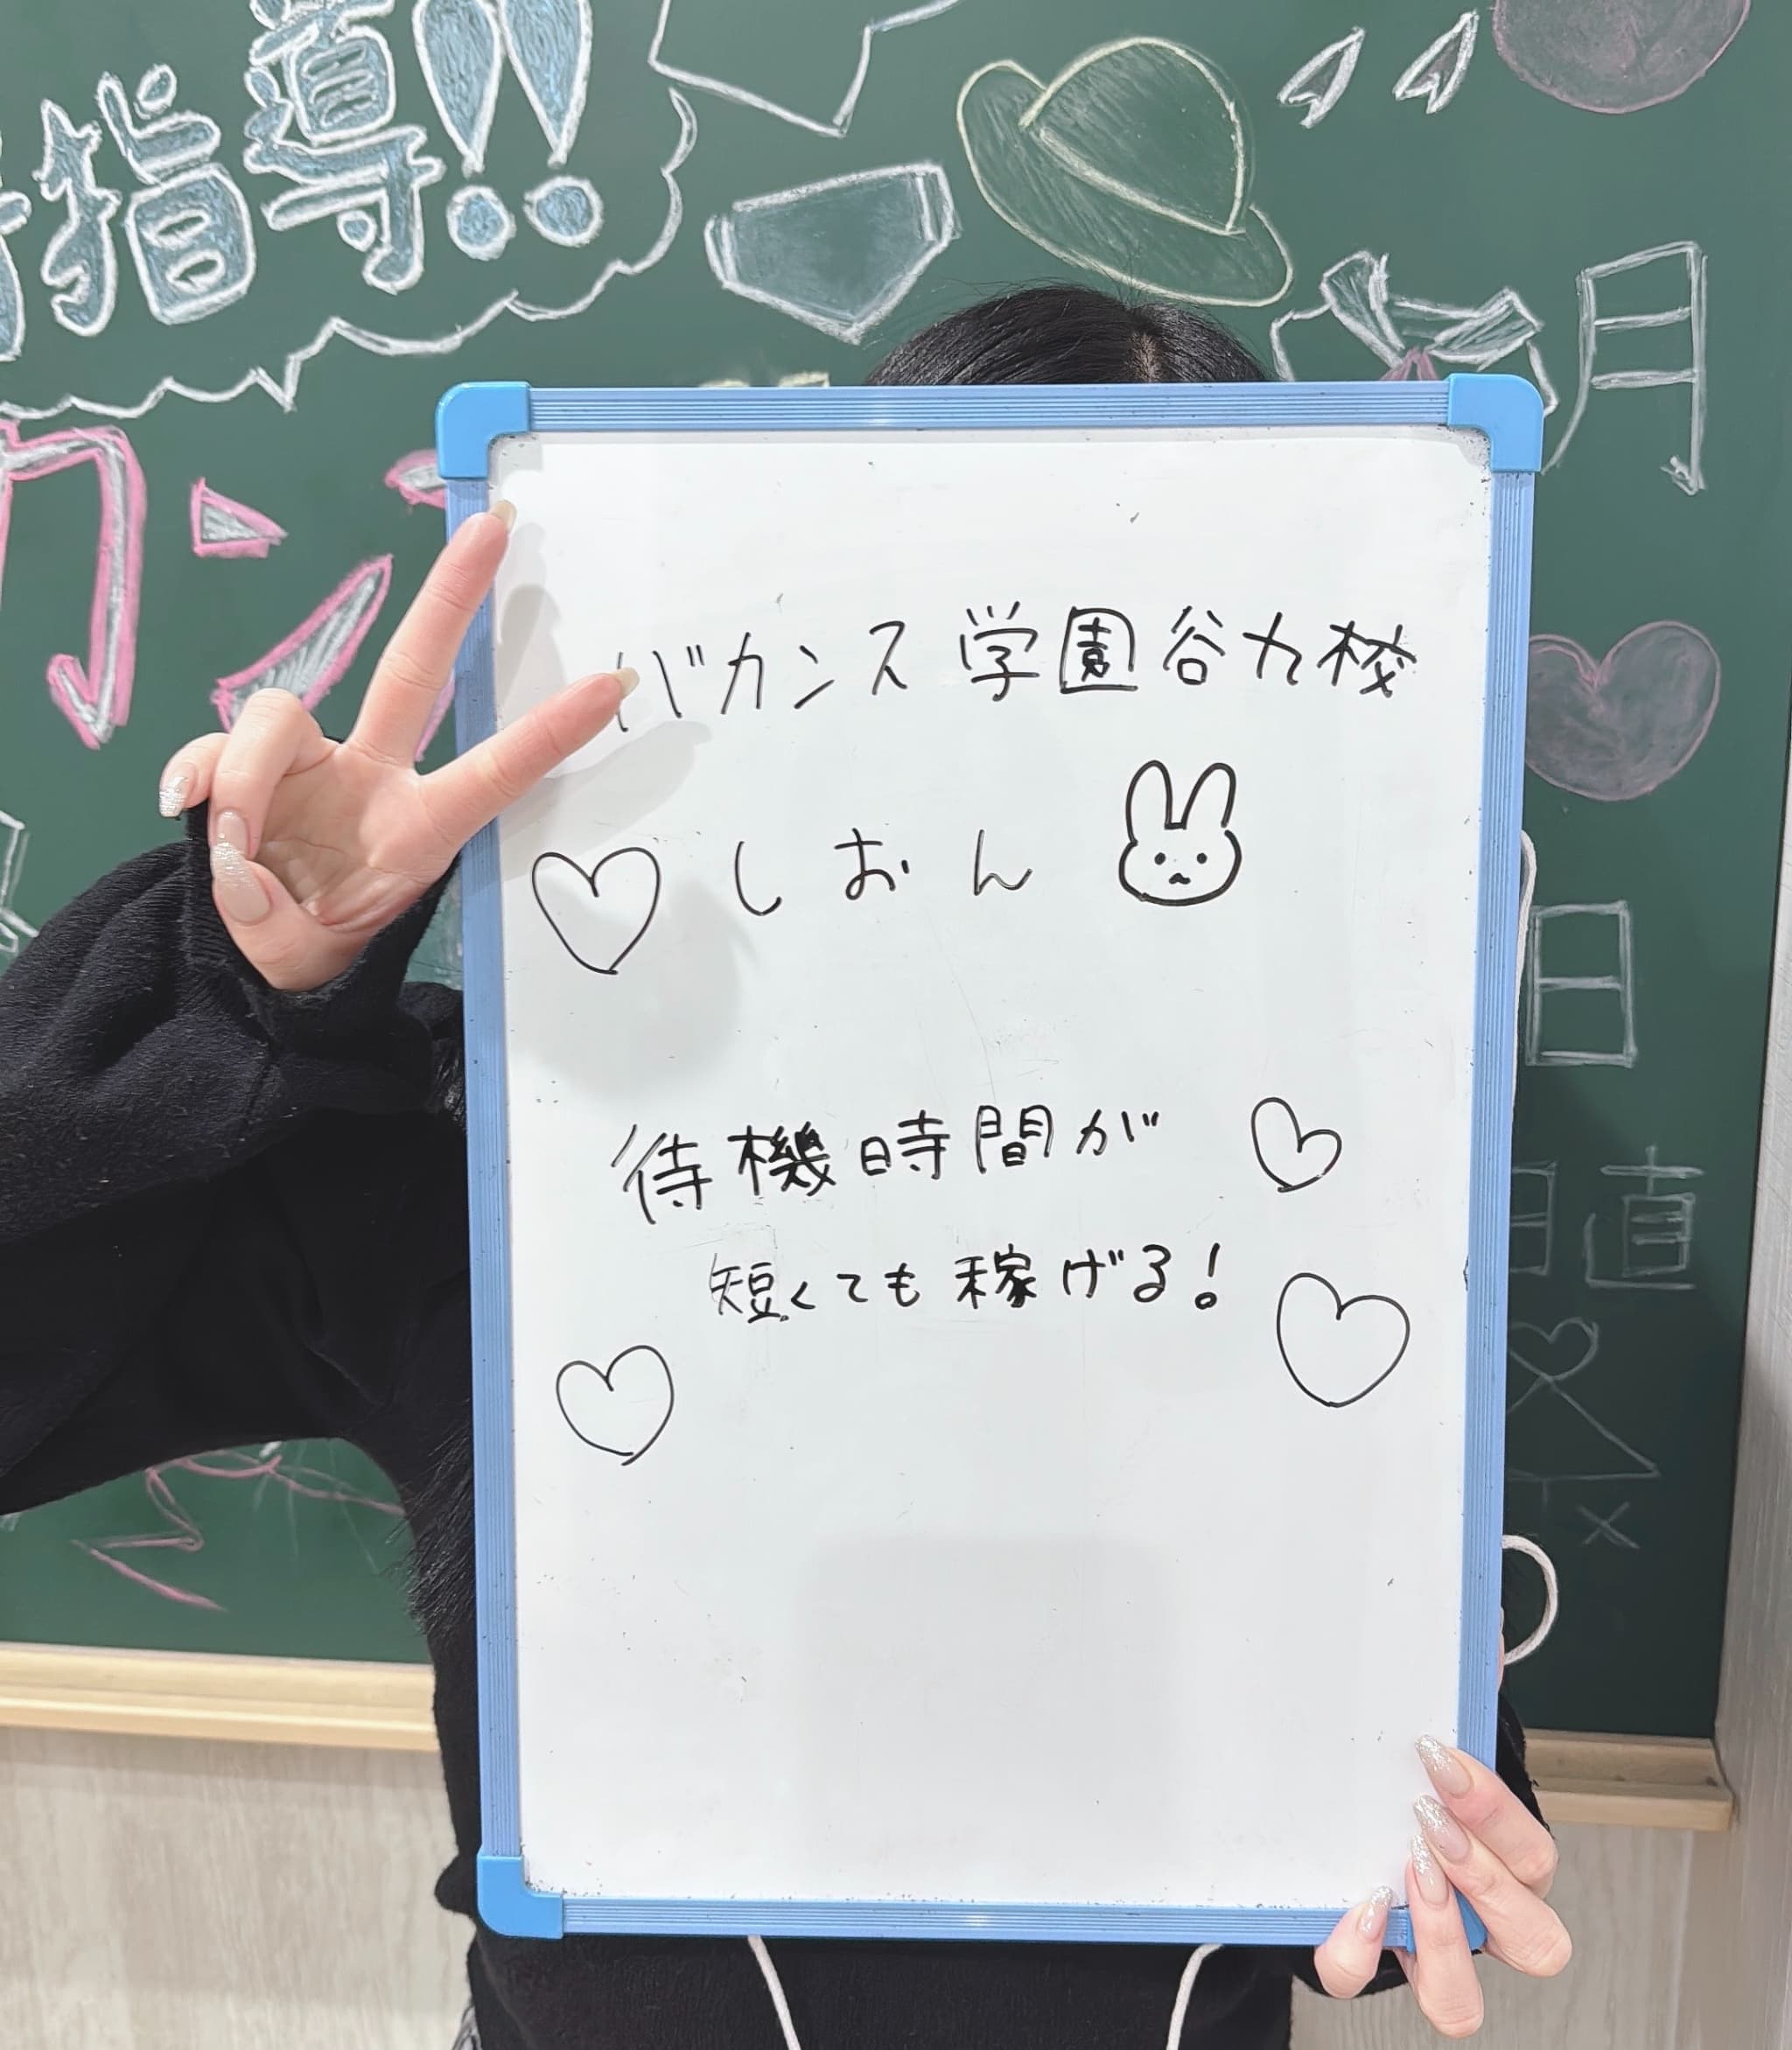 指導!!
カンス
月
バカンス学園谷九校
しおん
日
待機時間が
日直
短くても稼げる!